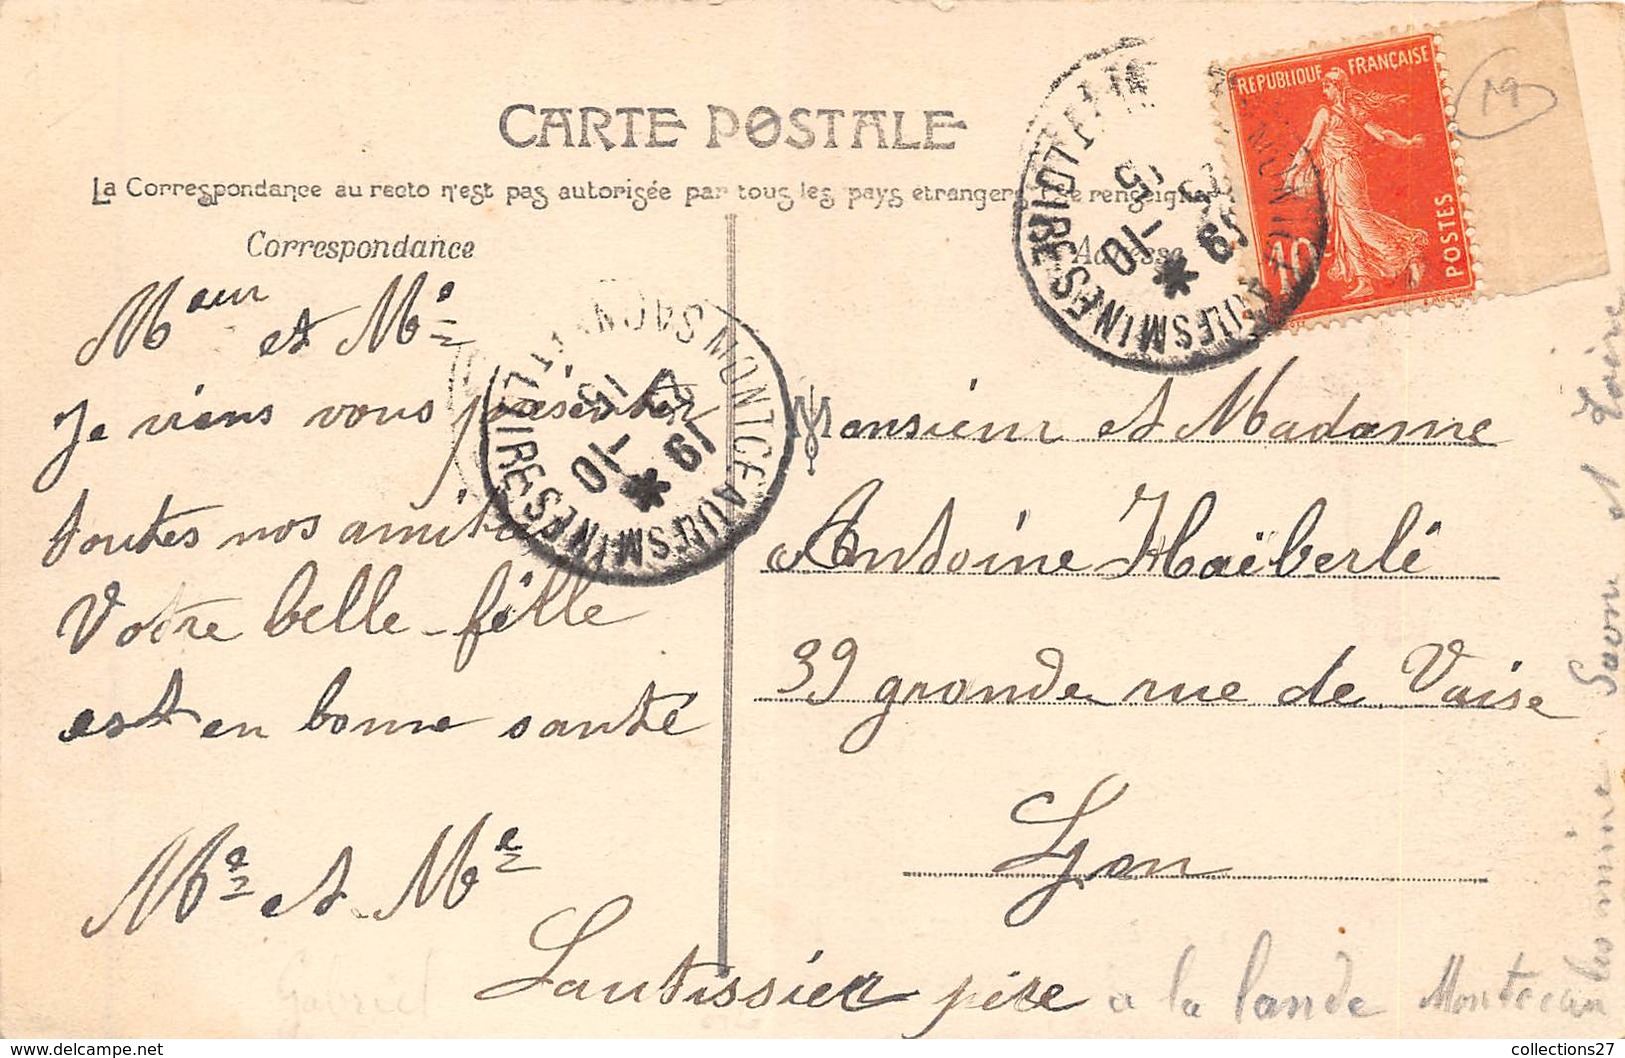 CARTE POSTALE
La Correspondance au recto n'est pas autorisée par tous les pays étrangers se renseigner
Correspondance
Adresse
REPUBLIQUE FRANÇAISE
POSTES
10
19
MONTCEAU LES MINES
SAONE ET LOIRE
15
27 -10
19
MONTCEAU LES MINES
ET LOIRE
15
-10
19
Meur et Me
Je viens vous présenter
toutes nos amitiés
Votre belle-fille
est en bonne santé
Me et Me
Lautissier père a la lande Montceau
les mine Saone et Loire
Gabriel
Monsieur et Madame
Antoine Haëberlé
39 grande rue de Vaise
Lyon
collections27